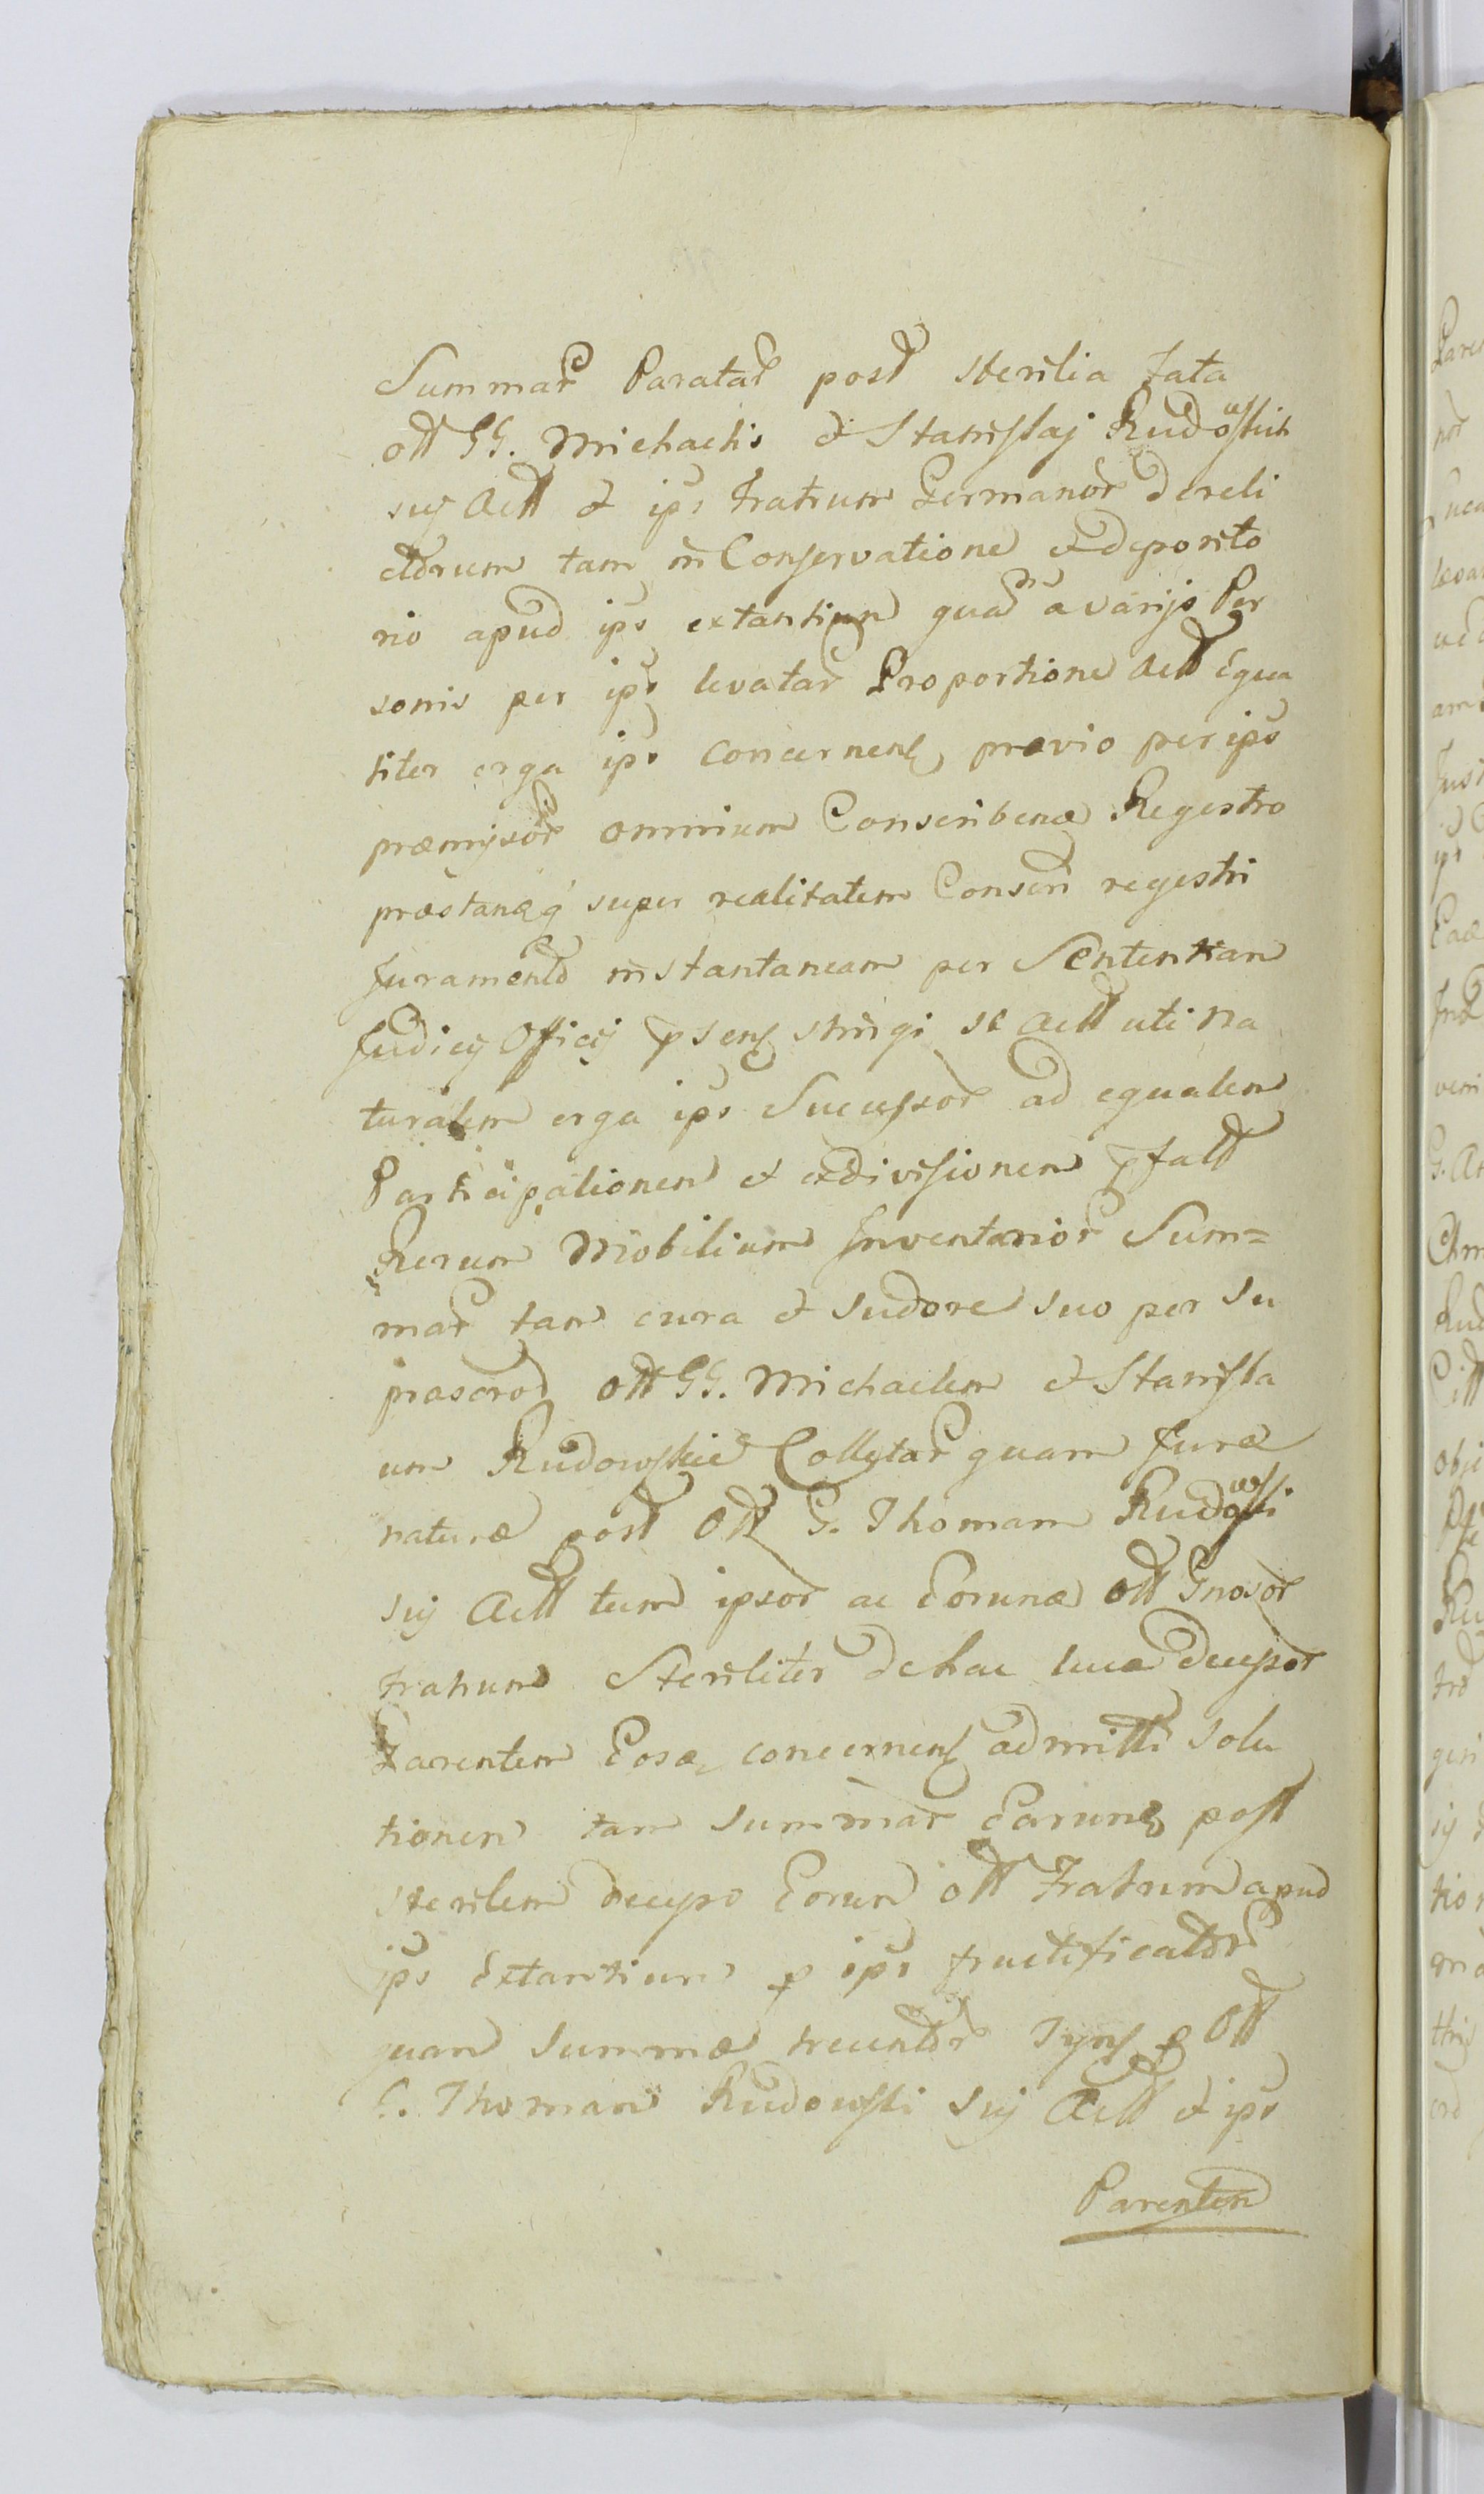 Summar Paratar post sterilia fata
ott GG. Michaelis et Stanislaj Rudowskich
suj Actt et ips Fratrum Germanor dereli
ctorum tam in Conservatione et deposito
rio apud ips extantium quam a varijs Per
sonis per ips levatar Proportione Actt Equa
liter erga ips concernen prævio per ips
præmissor omnium Conscribenæ Regestro
præstanæq super realitatem Conscri regestri
Juramento instantaneam per Sententiam
Judicij Officij psens stringi se Actt uti na
turalem erga ips Successor ad equalem
Participationem et exdivisionem pfatt
Rerum Mobilium Inventarior Sum=
mar tam cura et sudore suo per su
prascrod ott GG. Michaelem et Stanisla
um Rudowskie Collectar quam Jure
naturæ post Ott G. Thomam Rudowski
suj Actt tum ipsor ac Eorunæ ott Gnosor
Fratrum Steriliter de hac luce decessor
Parentem Eosæ concernen admitti solu
tionem tam summar earunæ post
sterilem decessu Eorum ott Fratrum apud
ips Extantium p ips fructificator
quam summæ trecentor Tynf p Ott
G. Thomam Rudowski suj Actt et ips
Parentem